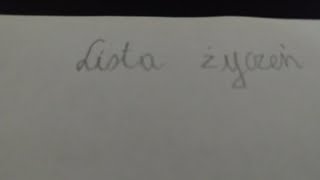 Lista życzeń